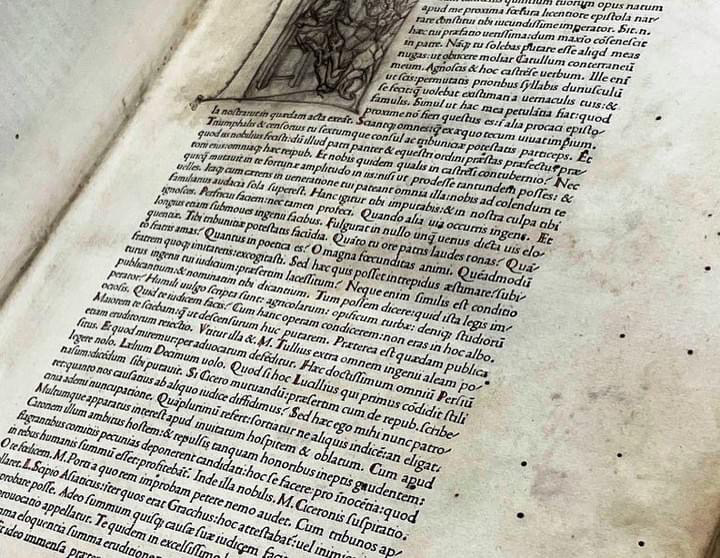 tuorum opus natum
apud me proxima fœtura licentiore epistola nar/
rare constitui tibi iucundissime imperator. Sit .n.
hæc tui præfatio uerissima: dum maxio cõsenescit
in patre. Nãq; tu solebas putare esse aliqd meas
nugas: ut obiicere moliar Catullum conterraneũ
meum. Agnoscis & hoc castrẽse uerbum. Ille enĩ
ut scis: permutatis prioribus syllabis duriusculũ
se fecit: q̃ uolebat existimari a uernaculis tuis: &
famulis. Simul ut hac mea petulãtia fiat: quod
proxime nõ fieri questus es: ĩ alia procaci episto/
la nostra: ut in quædam acta exeat. Sciantq; omnes: q̃ ex æquo tecum uiuat impium.
Triumphalis & censorius tu sextumque consul ac tribunicæ potestatis particeps. Et
quod iis nobilius fecisti: dũ illud patri pariter & equestri ordini præstas præfectus præ/
torii eius: omniaq; hæc reipub. Et nobis quidem qualis in castrẽsi contubernio? Nec
quicq̃ mutauit in te fortunæ amplitudo in iis: nisi ut prodesse tantundem posses: &
uelles. Itaq; cum cæteris in ueneratione tui pateant omnia illa: nobis ad colendum te
familiarius audacia sola superest. Hanc igitur tibi imputabis: & in nostra culpa tibi
ignosces. Perfricui faciem: nec tamen profeci. Quando alia uia occurris ingens. Et
longius etiam submoues ingenii facibus. Fulgurat in nullo unq̃ uerius dicta uis elo/
quentiæ. Tibi tribunitiæ potestatis facũdia. Quãto tu ore patris laudes tonas? Quã/
to fratris amas? Quantus in poetica es? O magna fœcunditas animi. Quẽadmodũ
fratrem quoq; imitareris: excogitasti. Sed hæc quis posset intrepidus æstimare: subi/
turus ingenii tui iudicium: præsertim lacessitum? Neque enim similis est conditio
publicantium: & nominatim tibi dicantium. Tum possem dicere: quid ista legis im/
perator? Humili uulgo scripta sunt: agricolarum: opificum turbæ: deniq; studiorũ
ociosis. Quid te iudicem facis? Cum hanc operam condicerem: non eras in hoc albo.
Maiorem te sciebam: q̃ ut descensurum huc putarem. Præterea est quædam publica
etiam eruditorum reiectio. Vtitur illa & M. Tullius extra omnem ingenii aleam po/
situs. Et quod miremur: per aduocatum defẽditur. Hæc doctissimum omniũ Persiũ
legere nolo. Lælium Decimum uolo. Quod si hoc Lucillius qui primus cõdidit stili
nasum: dicẽdum sibi putauit. Si Cicero mutuandũ: præsertim cum de repub. scribe/
ret: quanto nos causatius ab aliquo iudice diffidimus? Sed hæc ego mihi nunc patro/
cinia ademi nuncupatione. Quãplurimũ refert: sortiatur ne aliquis iudicẽ: an eligat.
Multumque apparatus interest apud inuitatum hospitem: & oblatum. Cum apud
Catonem illum ambitus hostem: & repulsis tanquam honoribus ineptis gaudentem:
flagrantibus comitiis pecunias deponerent candidati: hoc se facere: pro inocẽtia: quod
in rebus humanis summũ esset: profitebãt. Inde illa nobilis. M. Ciceronis suspiratio.
O te fœlicem. M. Porti: a quo rem improbam petere nemo audet. Cum tribunos ap/
pellaret. L. Scipio Asiaticus: iter quos erat Gracchus: hoc attestabat: uel inimico
probare posse. Adeo summum quisq; causæ suæ iudicem
prouocatio appellatur. Te quidem in excelsissimo
eloquentia summa eruditione
ideo immensa